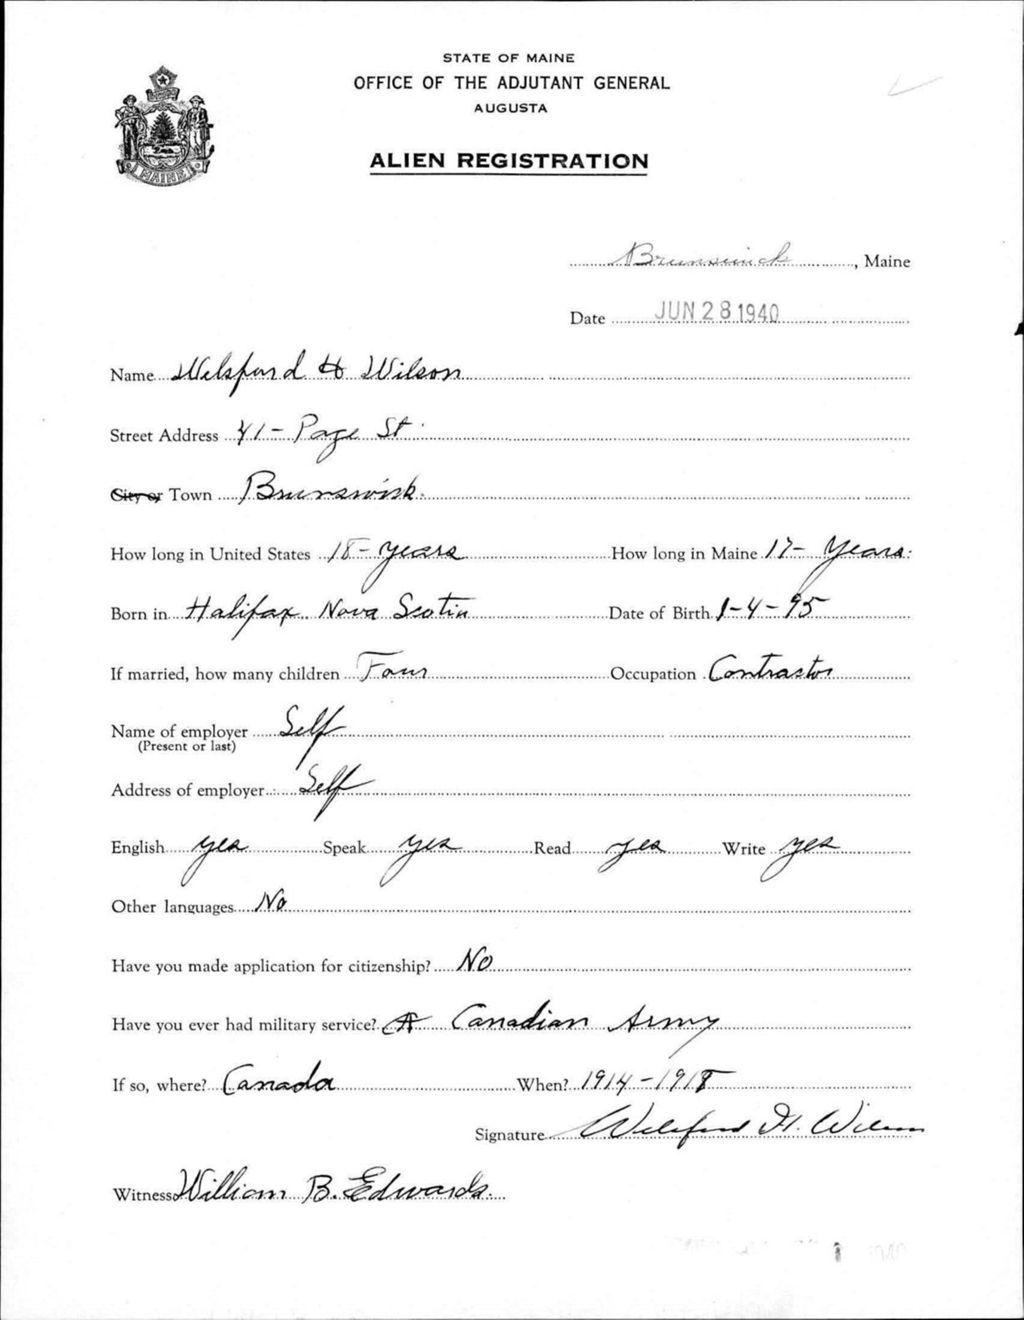 STATE OF MAINE
OFFICE OF THE ADJUTANT GENERAL
AUGUSTA
ALIEN REGISTRATION
MAINE
Brunswick, Maine
Date JUN 28 1940
Name Welsford H Wilson
Street Address 41 - Page St.
City or Town Brunswick.
How long in United States 18 - years How long in Maine 17 - Years.
Born in Halifax Nova Scotia Date of Birth 1-4-95
If married, how many children Four Occupation Contractor
Name of employer Self
(Present or last)
Address of employer Self
English yes Speak yes Read yes Write yes
Other languages No
Have you made application for citizenship? No
Have you ever had military service? Canadian Army
If so, where? Canada When? 1914-1918
Signature Welsford H. Wilson
Witness William B. Edwards.